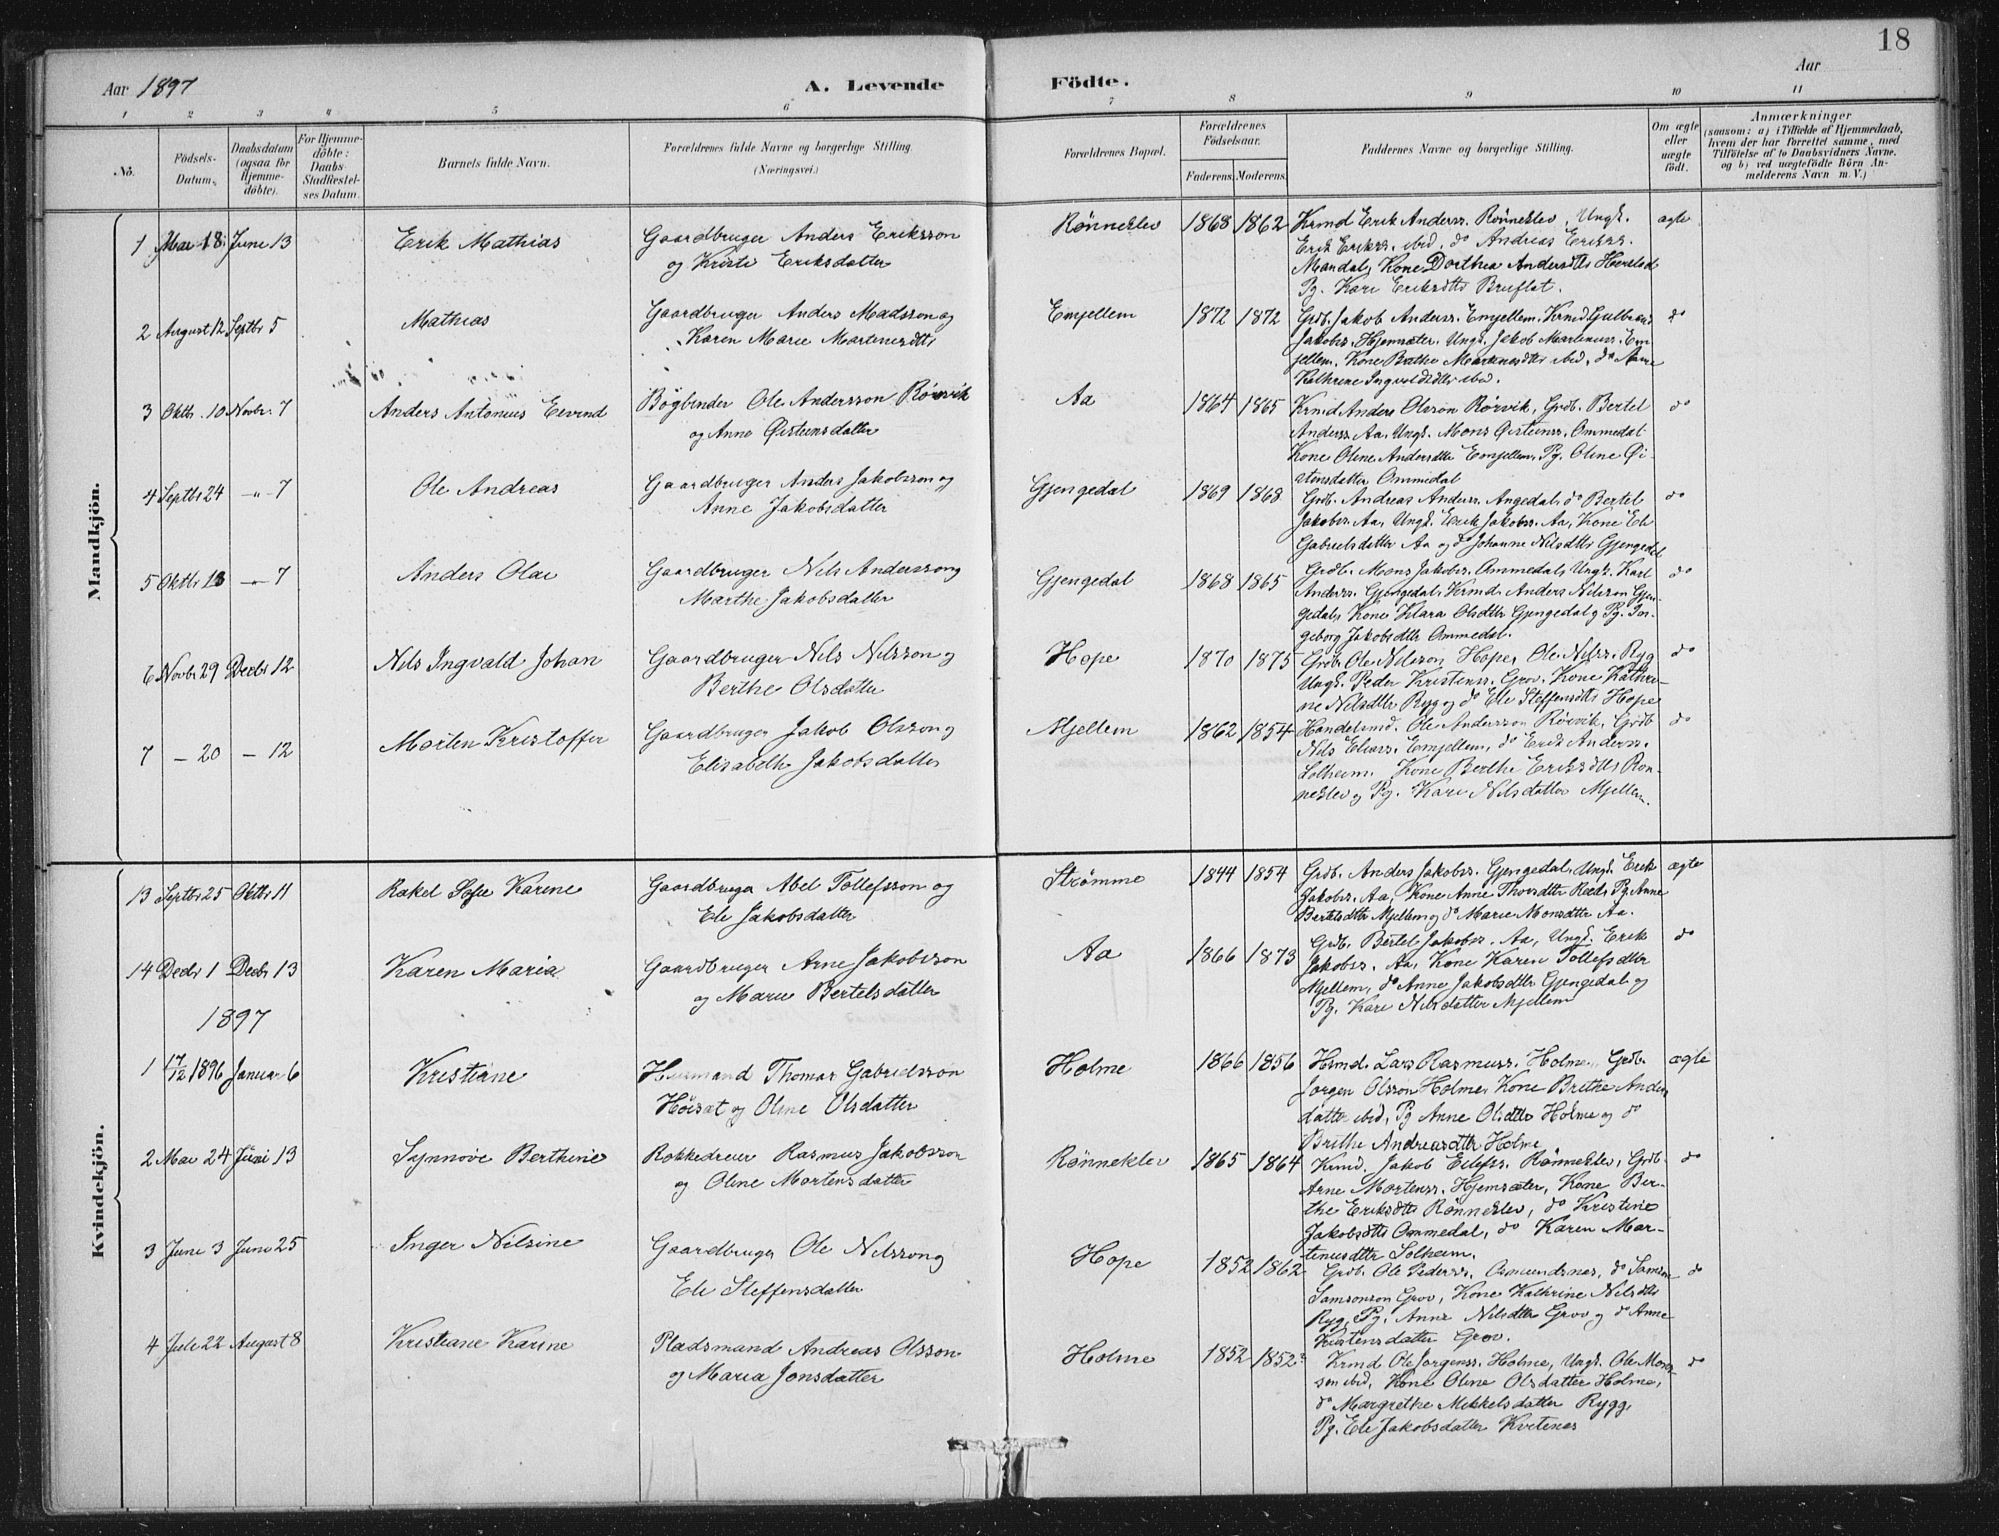 18
Aar 1897
A. Levende Födte.
Aar
1 2 3 4 5 6 7 8 9 10 11
No. Födsels-Datum. Daabsdatum (ogsaa for Hjemme-döbte). For Hjemme-döbte: Daabs-Stadfæstel-ses Datum. Barnets fulde Navn. Forældrenes fulde Navne og borgerlige Stilling. (Næringsvei.) Forældrenes Bopæl. Forældrenes Födselsaar. Faderens. Moderens. Faddernes Navne og borgerlige Stilling. Om ægte eller uægte födt. Anmærkninger (saasom: a) i Tilfælde af Hjemmedaab, hvem der har forrettet samme, med Tilföielse af to Daabsvidners Navne, og b) ved uægtefödte Börn An-melderens Navn m. V.)
Mandkjön.
1 Mai 18 June 13 Erik Mathias Gaardbruger Anders Eriksson Rønneklev 1868 1862 Krmd Erik Anderss. Rønneklev, Ungk. ægte
og Kristi Eriksdatter Erik Erikss. ibid, do Andreas Erikss.
Mandal, Kone Dorthea Andersdtr Herstad
Pg. Kari Eriksdtr Bruflat.
2 August 12 Septbr 5 Mathias Gaardbruger Anders Madsson og Emjellem 1872 1872 Grdb. Jakob Anderss. Emjellem, Krmd. Gulbrand do
Karen Marie Martinusdtr Jakobss. Hjemsæter, Ungk. Jakob Martinuss. Em-
jellem, Kone Brithe Martinusdtr ibid, do Anne
Kathrine Ingvoldsdtr ibid.
3 Oktbr. 10 Novbr. 7 Anders Antonius Eivind Bogbinder Ole Andersson Rørvik Aa 1864 1865 Krmd Anders Olsson Rørvik, Grdb. Bertel do
og Anne Øisteinsdatter Anderss. Aa, Ungk. Mons Øisteinss. Ommedal
Kone Oline Andersdtr Emjellem, Pg. Oline Øi-
steinsdatter Ommedal
4 Septbr 24 -"- 7 Ole Andreas Gaardbruger Anders Jakobsson og Gjengedal 1869 1868 Grdb. Andreas Anderss. Angedal, do Bertel do
Anne Jakobsdatter Jakobss. Aa, Ungk. Erik Jakobss. Aa, Kone Eli
Gabrielsdatter Aa og do Johanne Nilsdtr Gjengedal
5 Oktbr 13 -"- 7 Anders Olai Gaardbruger Nils Andersson og Gjengedal 1868 1865 Grdb. Mons Jakobss. Ommedal, Ungk. Karl do
Marthe Jakobsdatter Anderss. Gjengedal, Krmd. Anders Nilsson Gjen-
gedal, Kone Klara Olsdtr Gjengedal og Pg. In-
geborg Jakobsdtr Ommedal.
6 Novbr 29 Decbr 12 Nils Ingvald Johan Gaardbruger Nils Nilsson og Hope 1870 1875 Grdb. Ole Nilsson Hope, Ole Nilss. Ryg do
Berthe Olsdatter Ungk. Peder Kristenss. Grov, Kone Kathri-
ne Nilsdtr Ryg og do Eli Steffensdtr Hope
7 - 20 - 12 Morten Kristoffer Gaardbruger Jakob Olsson og Mjellem 1862 1854 Handelsmd. Ole Andersson Rørvik, Grdb. do
Elisabeth Jakobsdatter Nils Eliass. Emjellem, do Erik Anderss.
Solheim, Kone Berthe Eriksdtr Røn-
neklev og Pg. Kari Nilsdatter Mjellem.
Kvindekjön.
13 Septbr 25 Oktbr 11 Rakel Sofie Karine Gaardbruger Abel Tollefsson og Strømme 1844 1854 Grdb. Anders Jakobss. Gjengedal, Ungk. Erik ægte
Eli Jakobsdatter Jakobss. Aa, Kone Anne Thorsdtr Red, Pg. Anne
Bertelsdtr Mjellem og do Marie Monsdtr Aa.
14 Decbr 1 Decbr 13 Karen Maria Gaardbruger Arne Jakobsson Aa 1866 1873 Grdb. Bertel Jakobss. Aa, Ungk. Erik do
og Marie Bertelsdatter Jakobss. Aa, Kone Karen Tollefsdtr
Mjellem, do Anne Jakobsdtr Gjengedal og
Pg. Kari Nilsdatter Mjellem
1897
1 17/12 1896 Januar 6 Kristiane Husmand Thomas Gabrielsson Holme 1866 1856 Hsmd. Lars Rasmuss. Holme, Grdb. ægte
Høisæt og Oline Olsdatter Jørgen Olsson Holme, Kone Brithe Anders
datter ibid, Pg Anne Olsdtr Holme og do
Brithe Andreasdtr Holme
2 Mai 24 Juni 13 Synnøve Berthine Rokkedreier Rasmus Jakobsson Rønneklev 1865 1864 Krmd. Jakob Eilefss. Rønneklev, Grdb. do
og Oline Mortensdatter Arne Mortenss. Hjemsæter, Kone Ber-
the Eriksdtr Rønneklev, do Kristine
Jakobsdtr Ommedal, do Karen Mar-
tinusdtr Solheim.
3 June 3 June 25 Inger Nilsine Gaardbruger Ole Nilsson og Hope 1852 1862 Grdb. Ole Pederss. Osmundnes, do Samson do
Eli Steffensdatter Samsonson Grov, Kone Kathrine Nilsdtr
Ryg, Pg. Anne Nilsdtr Grov og do Anne
Kristensdatter Grov.
4 Juli 22 August 8 Kristiane Karine Pladsmand Andreas Olsson Holme 1852 1852? Krmd Ole Jørgenss. Holme, Ungk. Ole Mons- do
og Maria Jonsdatter son ibid, Kone Oline Olsdatter Holme,
do Margrethe Mikkelsdatter Rygg,
Pg. Eli Jakobsdatter Kvitenes